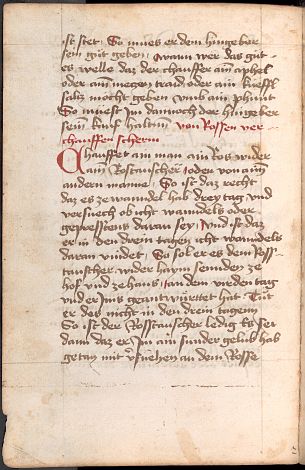 ist stet So mues er dem hingeber
sein gut geben wann wer das gut
es welle daz der chauffer ain aphel
oder ain meczen traid oder ain kueffl
saltz mocht geben umb ain phunt
So muest Im dannoch der hingeber
sein kauf haltin von Rossen ver
chauffen schern
Chauffet ain man ain Ros wider
ain Rostauscher oden von aim
andern manne So ist daz recht
daz es ze wanndel hab drey tag und
versuech ob icht wanndels oder
geprestens daran sey Und ist daz
er in den drein tagen icht wanndels
daran vindet So sol er es dem Ross
tauscher wider haym sennden ze
hof und ze haus an dem vierden tag
und er Ims geantwurttet hat Tut
er des nicht in den drein tagenn
So ist der Rosstauscher ledig Es sei
dann daz er Im ain sunder gelub hab
getan mit auf dem Rosse